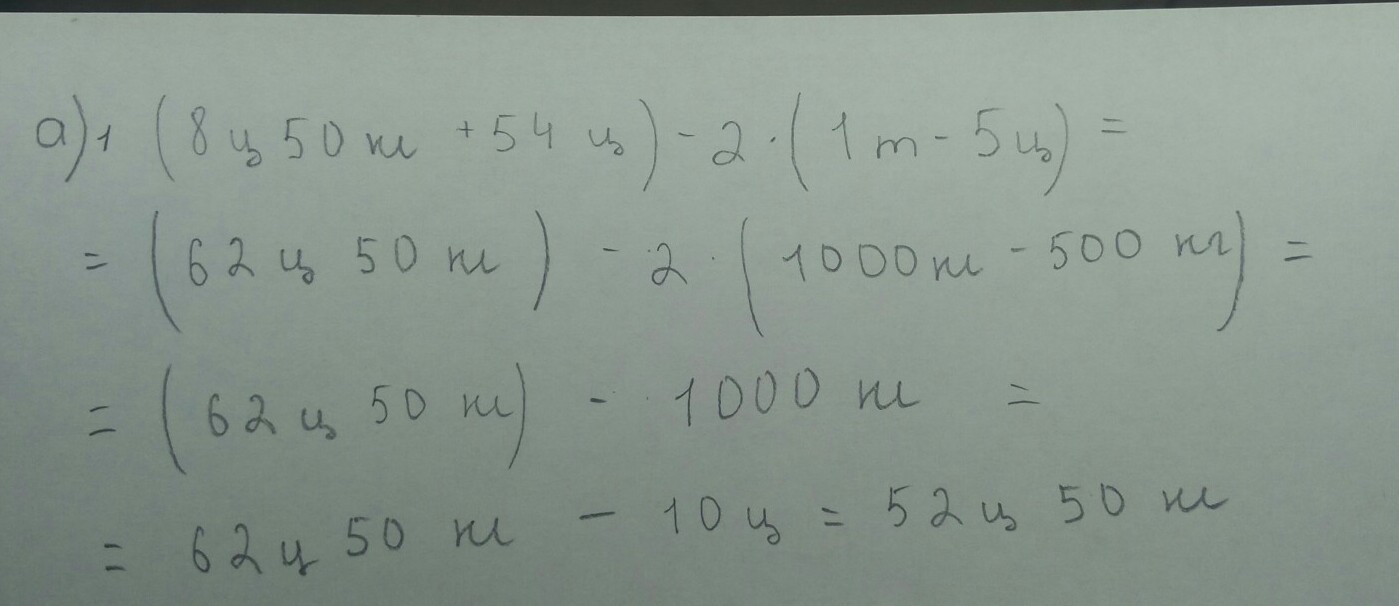 а)1 (8 ц 50 кг + 54 ц) - 2 · (1 т - 5 ц) =
= (62 ц 50 кг) - 2 · (1000 кг - 500 кг) =
= (62 ц 50 кг) - 1000 кг =
= 62 ц 50 кг - 10 ц = 52 ц 50 кг